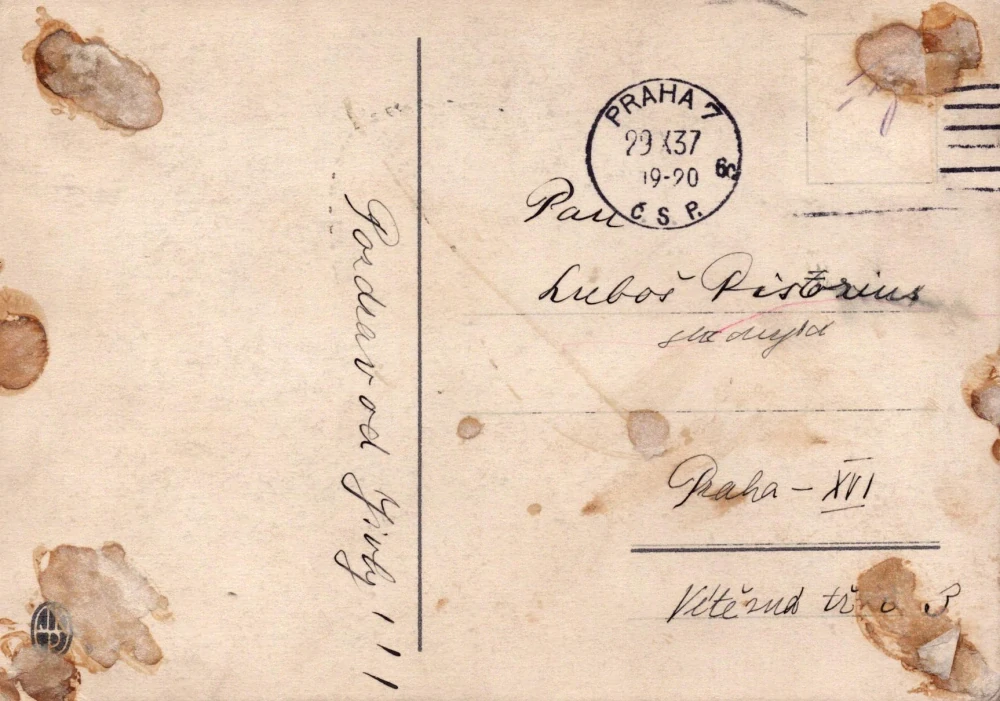 Pozdrav od Jirky!!!
PRAHA 7
29 X 37
19-20
6c
Č.S.P.
Pan
Luboš Pistorius
Praha – XVI
Vítězná tř.